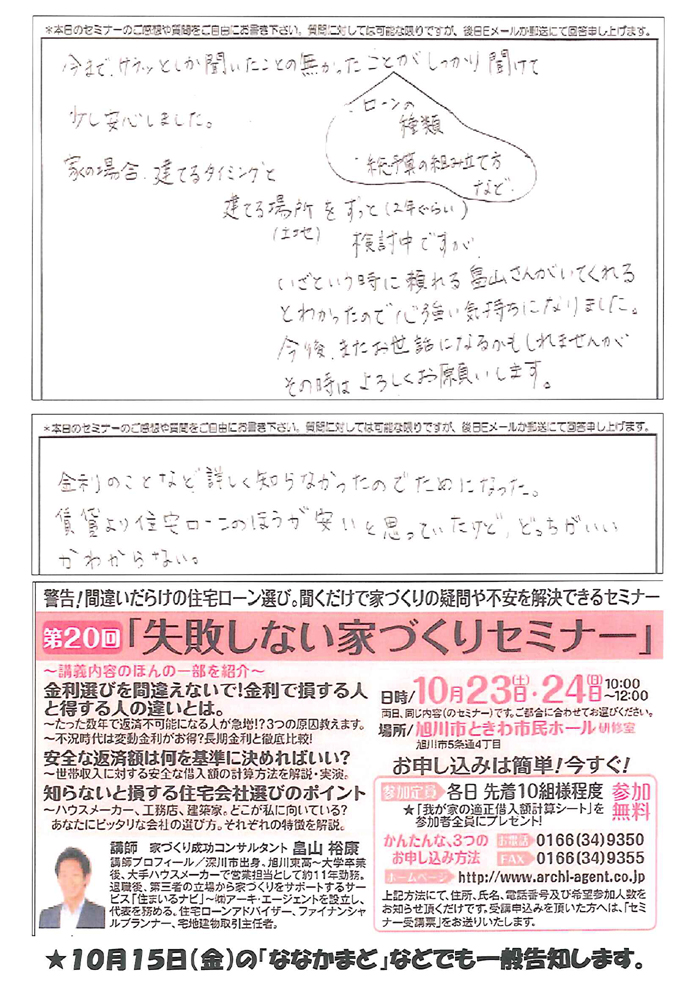 *本日のセミナーのご感想や質問をご自由にお書き下さい。質問に対しては可能な限りですが、後日Eメールか郵送にて回答申し上げます。
今まで、サラッとしか聞いたことの無かったことがしっかり聞けて
少し安心しました。
・ローンの
種類
・総予算の組み立て方
など
家の場合、建てるタイミングと
建てる場所をずっと(2年ぐらい)
(土地)
検討中ですが、
いざという時に頼れる畠山さんがいてくれる
とわかったので心強い気持ちになりました。
今後、またお世話になるかもしれませんが
その時はよろしくお願いします。
*本日のセミナーのご感想や質問をご自由にお書き下さい。質問に対しては可能な限りですが、後日Eメールか郵送にて回答申し上げます。
金利のことなど詳しく知らなかったのでためになった。
賃貸より住宅ローンのほうが安いと思っていたけど、どっちがいい
かわからない。
警告!間違いだらけの住宅ローン選び。聞くだけで家づくりの疑問や不安を解決できるセミナー
第20回「失敗しない家づくりセミナー」
~講義内容のほんの一部を紹介~
金利選びを間違えないで!金利で損する人
と得する人の違いとは。
~たった数年で返済不可能になる人が急増!?3つの原因教えます。
~不況時代は変動金利がお得?長期金利と徹底比較!
安全な返済額は何を基準に決めればいい?
~世帯収入に対する安全な借入額の計算方法を解説・実演。
知らないと損する住宅会社選びのポイント
~ハウスメーカー、工務店、建築家。どこが私に向いている?
あなたにピッタリな会社の選び方。それぞれの特徴を解説。
講師 家づくり成功コンサルタント 畠山 裕康
講師プロフィール/深川市出身、旭川東高~大学卒業
後、大手ハウスメーカーで営業担当として約11年勤務。
退職後、第三者の立場から家づくりをサポートするサー
ビス「住まいるナビ」~㈱アーキ・エージェントを設立し、
代表を務める。住宅ローンアドバイザー、ファイナンシャ
ルプランナー、宅地建物取引主任者。
日時/10月23日(土)・24日(日)10:00~12:00
両日、同じ内容(のセミナー)です。ご都合に合わせてお選びください。
場所/旭川市ときわ市民ホール研修室
旭川市5条通4丁目
お申し込みは簡単!今すぐ!
参加定員 各日 先着10組様程度
★「我が家の適正借入額計算シート」を
参加者全員にプレゼント!
参加無料
かんたんな、3つの
お申し込み方法
お電話 0166(34)9350
FAX 0166(34)9355
ホームページ http://www.archi-agent.co.jp
上記方法にて、住所、氏名、電話番号及び希望参加人数を
お知らせ頂くだけです。受講申込みを頂いた方へは、「セミ
ナー受講票」をお送りいたします。
★10月15日(金)の「ななかまど」などでも一般告知します。